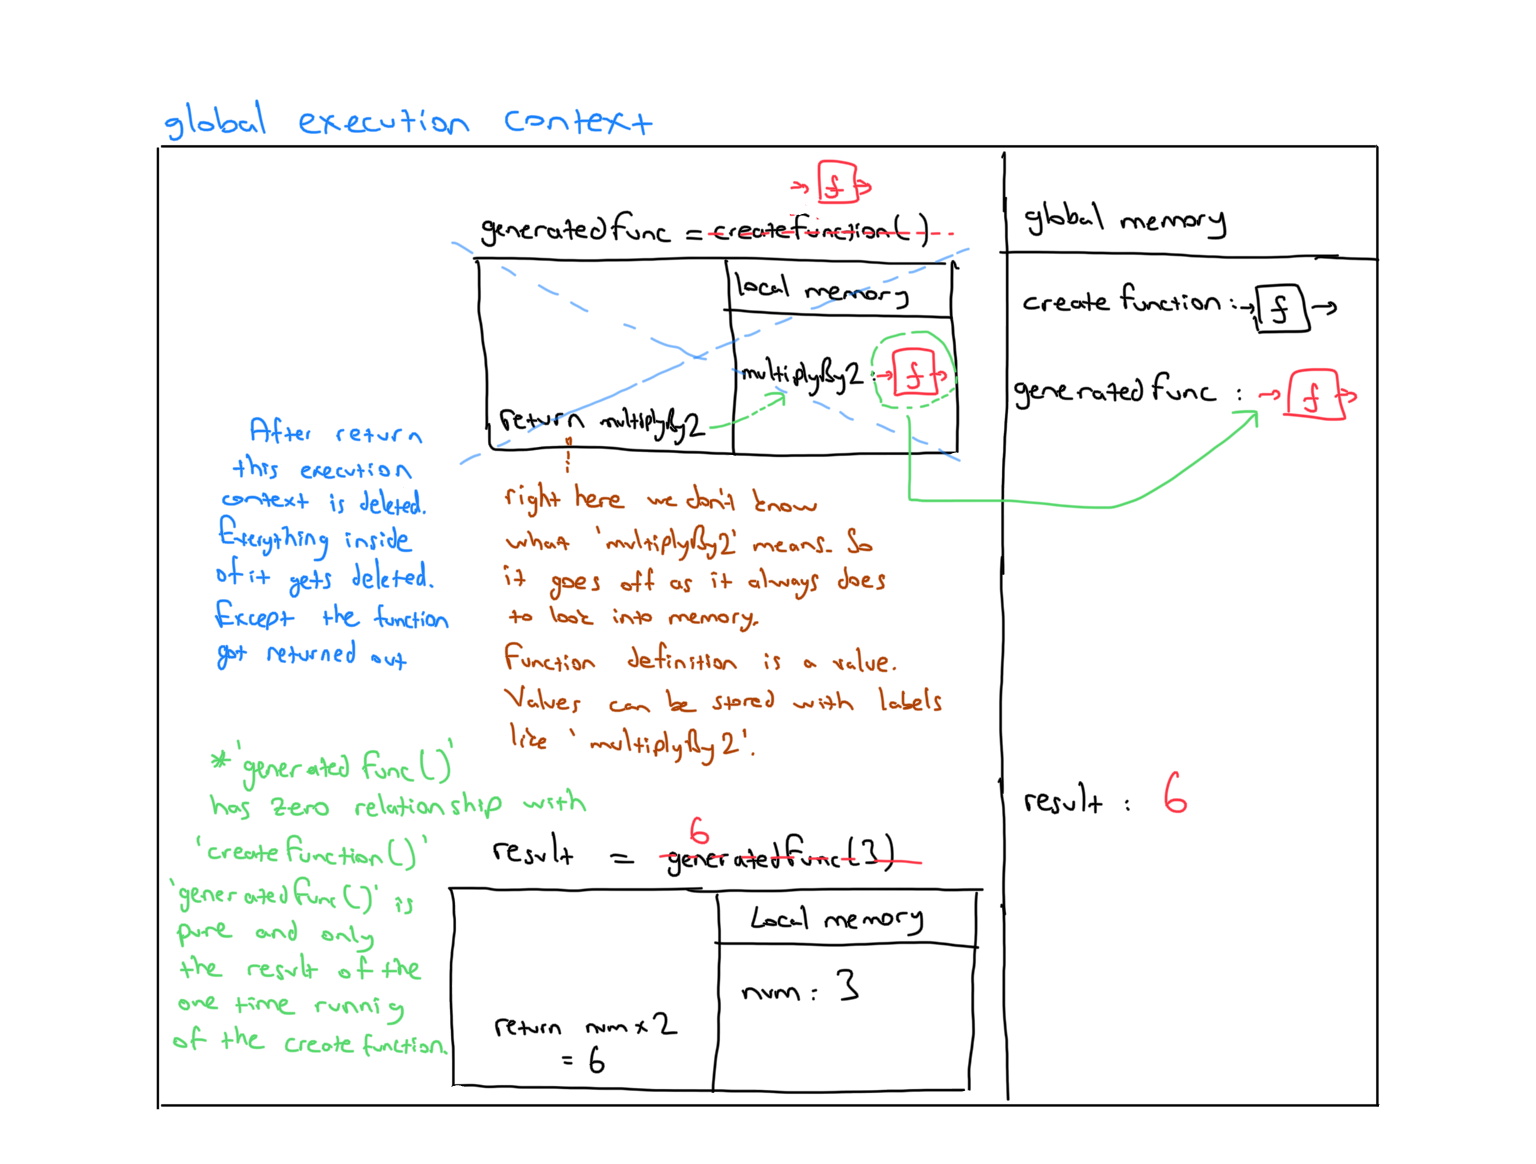 global execution context
f
generatedfunc = createfunction()
global memory
local memory
createfunction : f
multiplyBy2 : f
generatedfunc : f
return multiplyBy2
After return
this execution
context is deleted.
Everything inside
of it gets deleted.
Except the function
got returned out
right here we don't know
what 'multiplyBy2' means. So
it goes off as it always does
to look into memory.
Function definition is a value.
Values can be stored with labels
like 'multiplyBy2'.
*'generatedfunc()'
has zero relationship with
'createfunction()'
'generatedfunc()' is
pure and only
the result of the
one time runnig
of the createfunction.
result : 6
6
result = generatedfunc(3)
Local memory
num : 3
return num x 2
= 6